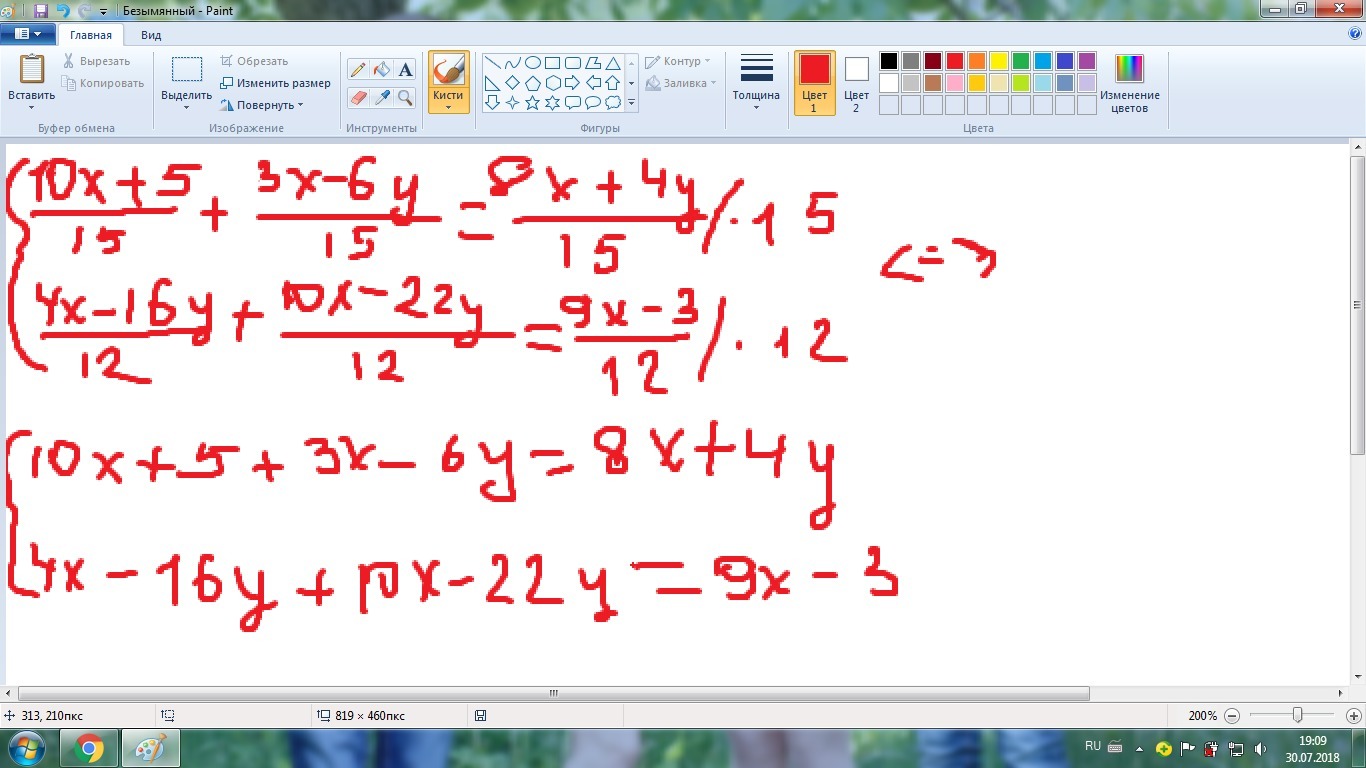 Безымянный - Paint
Главная Вид
Вставить
Вырезать
Копировать
Буфер обмена
Выделить
Обрезать
Изменить размер
Повернуть
Изображение
Инструменты
Кисти
Контур
Заливка
Фигуры
Толщина
Цвет 1
Цвет 2
Изменение цветов
Цвета
10x+5/15 + 3x-6y/15 = 8x+4y/15 /·15
<=>
4x-16y/12 + 10x-22y/12 = 9x-3/12 /·12
10x+5+3x-6y=8x+4y
4x-16y+10x-22y=9x-3
313, 210пкс 819 × 460пкс 200%
RU 19:09
30.07.2018